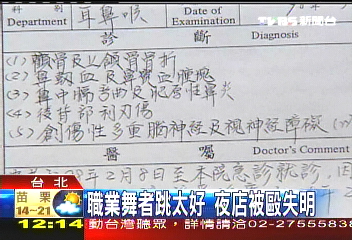 科別 Department 耳鼻喉 診察日期 Date of Examination 98年
TVBS NEWS
診 斷 Diagnosis
(1) 顴骨及上頜骨骨折
(2) 鼻龈血及鼻竇血腫塊
(3) 鼻中隔彎曲及肥厚性鼻炎
(4) 後背部利刃傷
(5) 創傷性多重腦神經及視神經障礙
醫 囑 Doctor's Comment
年2月8日至本院急診就診,因
苗栗
14~21
台北
職業舞者跳太好 夜店被毆失明
12:14
動台灣聽眾/諮詢 02-27555838